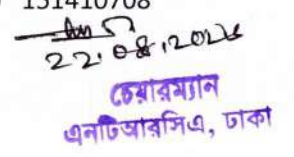 151410708
22.08.2024
চেয়ারম্যান
এনটিআরসিএ, ঢাকা